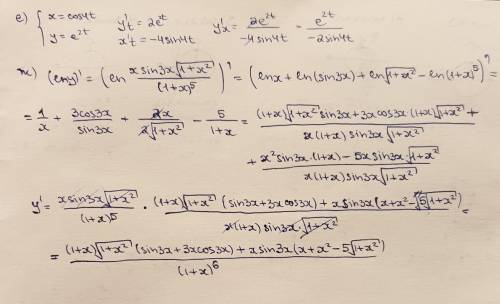 e) { x = cos4t   y't = 2e^t   y'x = 2e^2t / -4sin4t = e^2t / -2sin4t
y = e^2t   x't = -4sin4t
m) (ln y)' = (ln x sin3x √(1+x²) / (1+x)^5)' = (ln x + ln(sin3x) + ln√(1+x²) - ln(1+x)^5)' =
= 1/x + 3cos3x/sin3x + 2x/2√(1+x²) - 5/(1+x) = ((1+x)√(1+x²) sin3x + 3x cos3x·(1+x)√(1+x²) + / x(1+x) sin3x √(1+x²)
+ x² sin3x·(1+x) - 5x sin3x √(1+x²) / x(1+x) sin3x √(1+x²)
y' = x sin3x √(1+x²) / (1+x)^5 · (1+x)√(1+x²) (sin3x + 3x cos3x) + x sin3x (x+x² - 5√(1+x²) / x(1+x) sin3x·√(1+x²) =
= (1+x)√(1+x²) (sin3x + 3x cos3x) + x sin3x (x + x² - 5√(1+x²)) / (1+x)^6